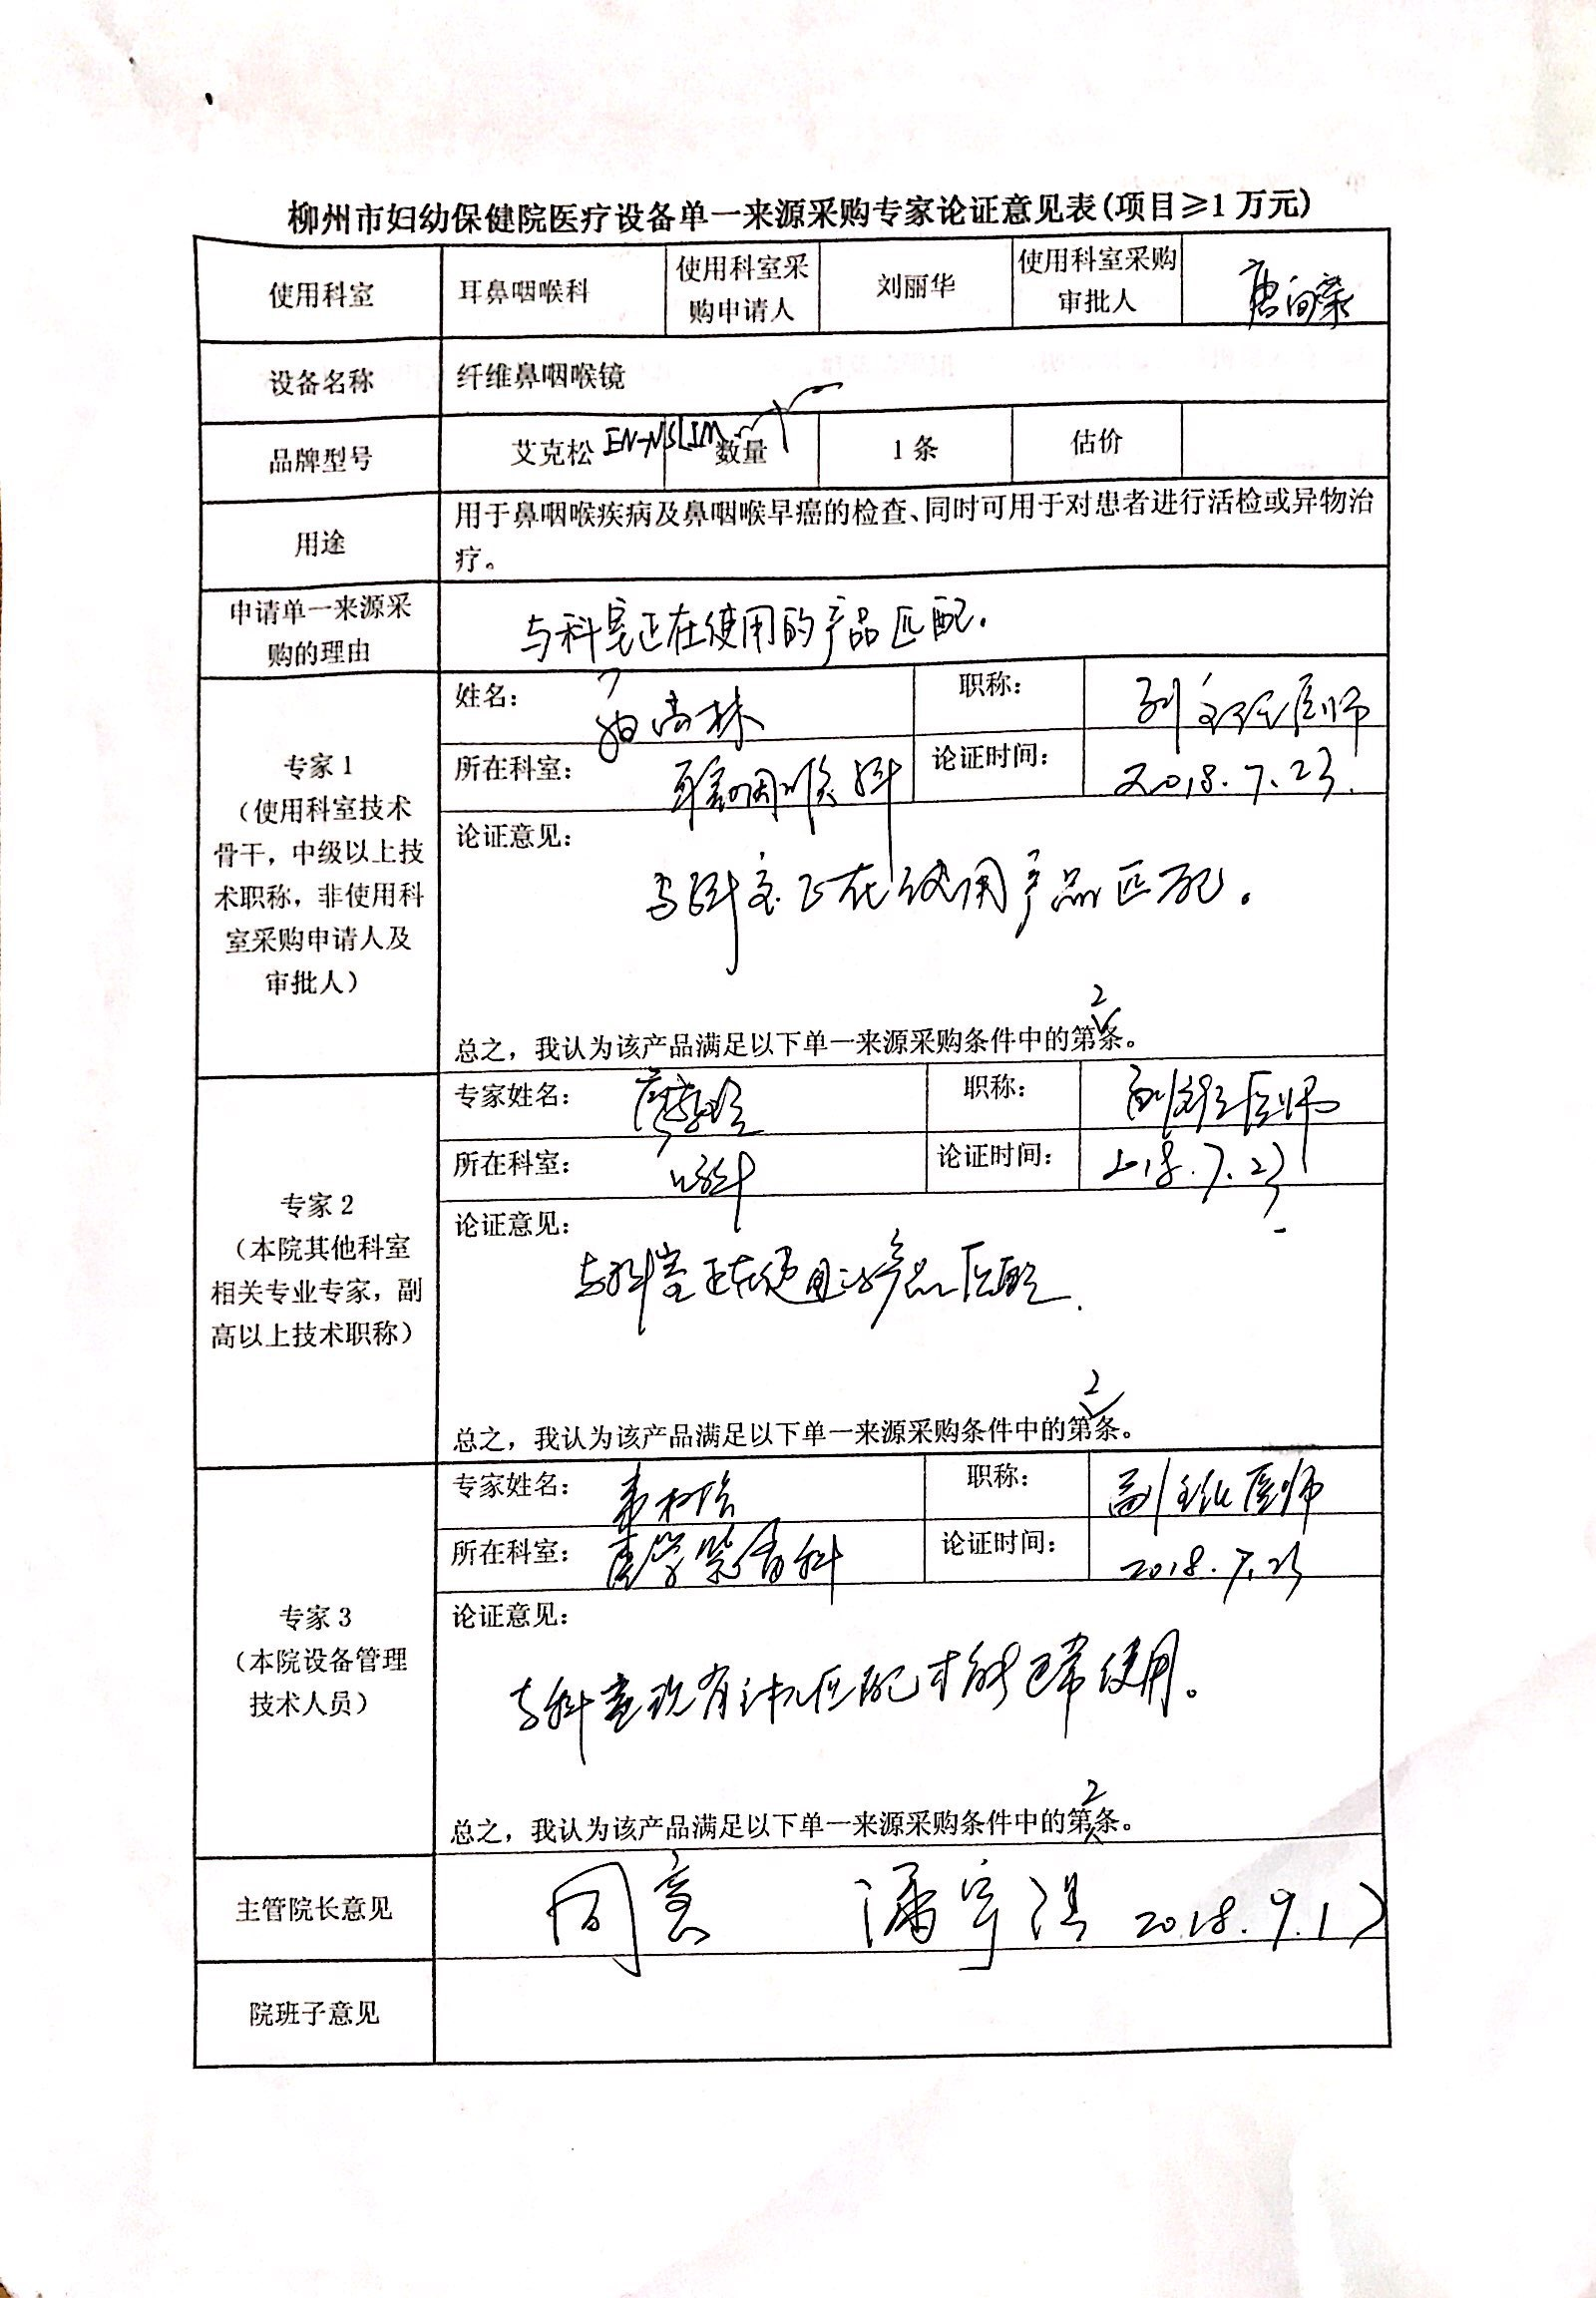 柳州市妇幼保健院医疗设备单一来源采购专家论证意见表(项目≥1万元)
使用科室 耳鼻咽喉科 使用科室采购申请人 刘丽华 使用科室采购审批人
设备名称 纤维鼻咽喉镜
品牌型号 艾克松 数量 1条 估价
用途 用于鼻咽喉疾病及鼻咽喉早癌的检查、同时可用于对患者进行活检或异物治
疗。
申请单一来源采
购的理由
与科室正在使用的产品匹配。
专家1
(使用科室技术
骨干，中级以上技
术职称，非使用科
室采购申请人及
审批人)
姓名: 职称: 副主任医师
所在科室: 耳鼻咽喉科 论证时间: 2018.7.23.
论证意见:
与科室正在使用产品匹配。
总之，我认为该产品满足以下单一来源采购条件中的第2条。
专家2
(本院其他科室
相关专业专家，副
高以上技术职称)
专家姓名: 职称: 副主任医师
所在科室: 论证时间: 2018.7.23
论证意见:
与科室正在使用的产品匹配.
总之，我认为该产品满足以下单一来源采购条件中的第2条。
专家3
(本院设备管理
技术人员)
专家姓名: 职称: 副主任医师
所在科室: 医学装备科 论证时间: 2018.7.23
论证意见:
与科室现有主机匹配才能正常使用。
总之，我认为该产品满足以下单一来源采购条件中的第2条。
主管院长意见 同意 2018.9.17
院班子意见